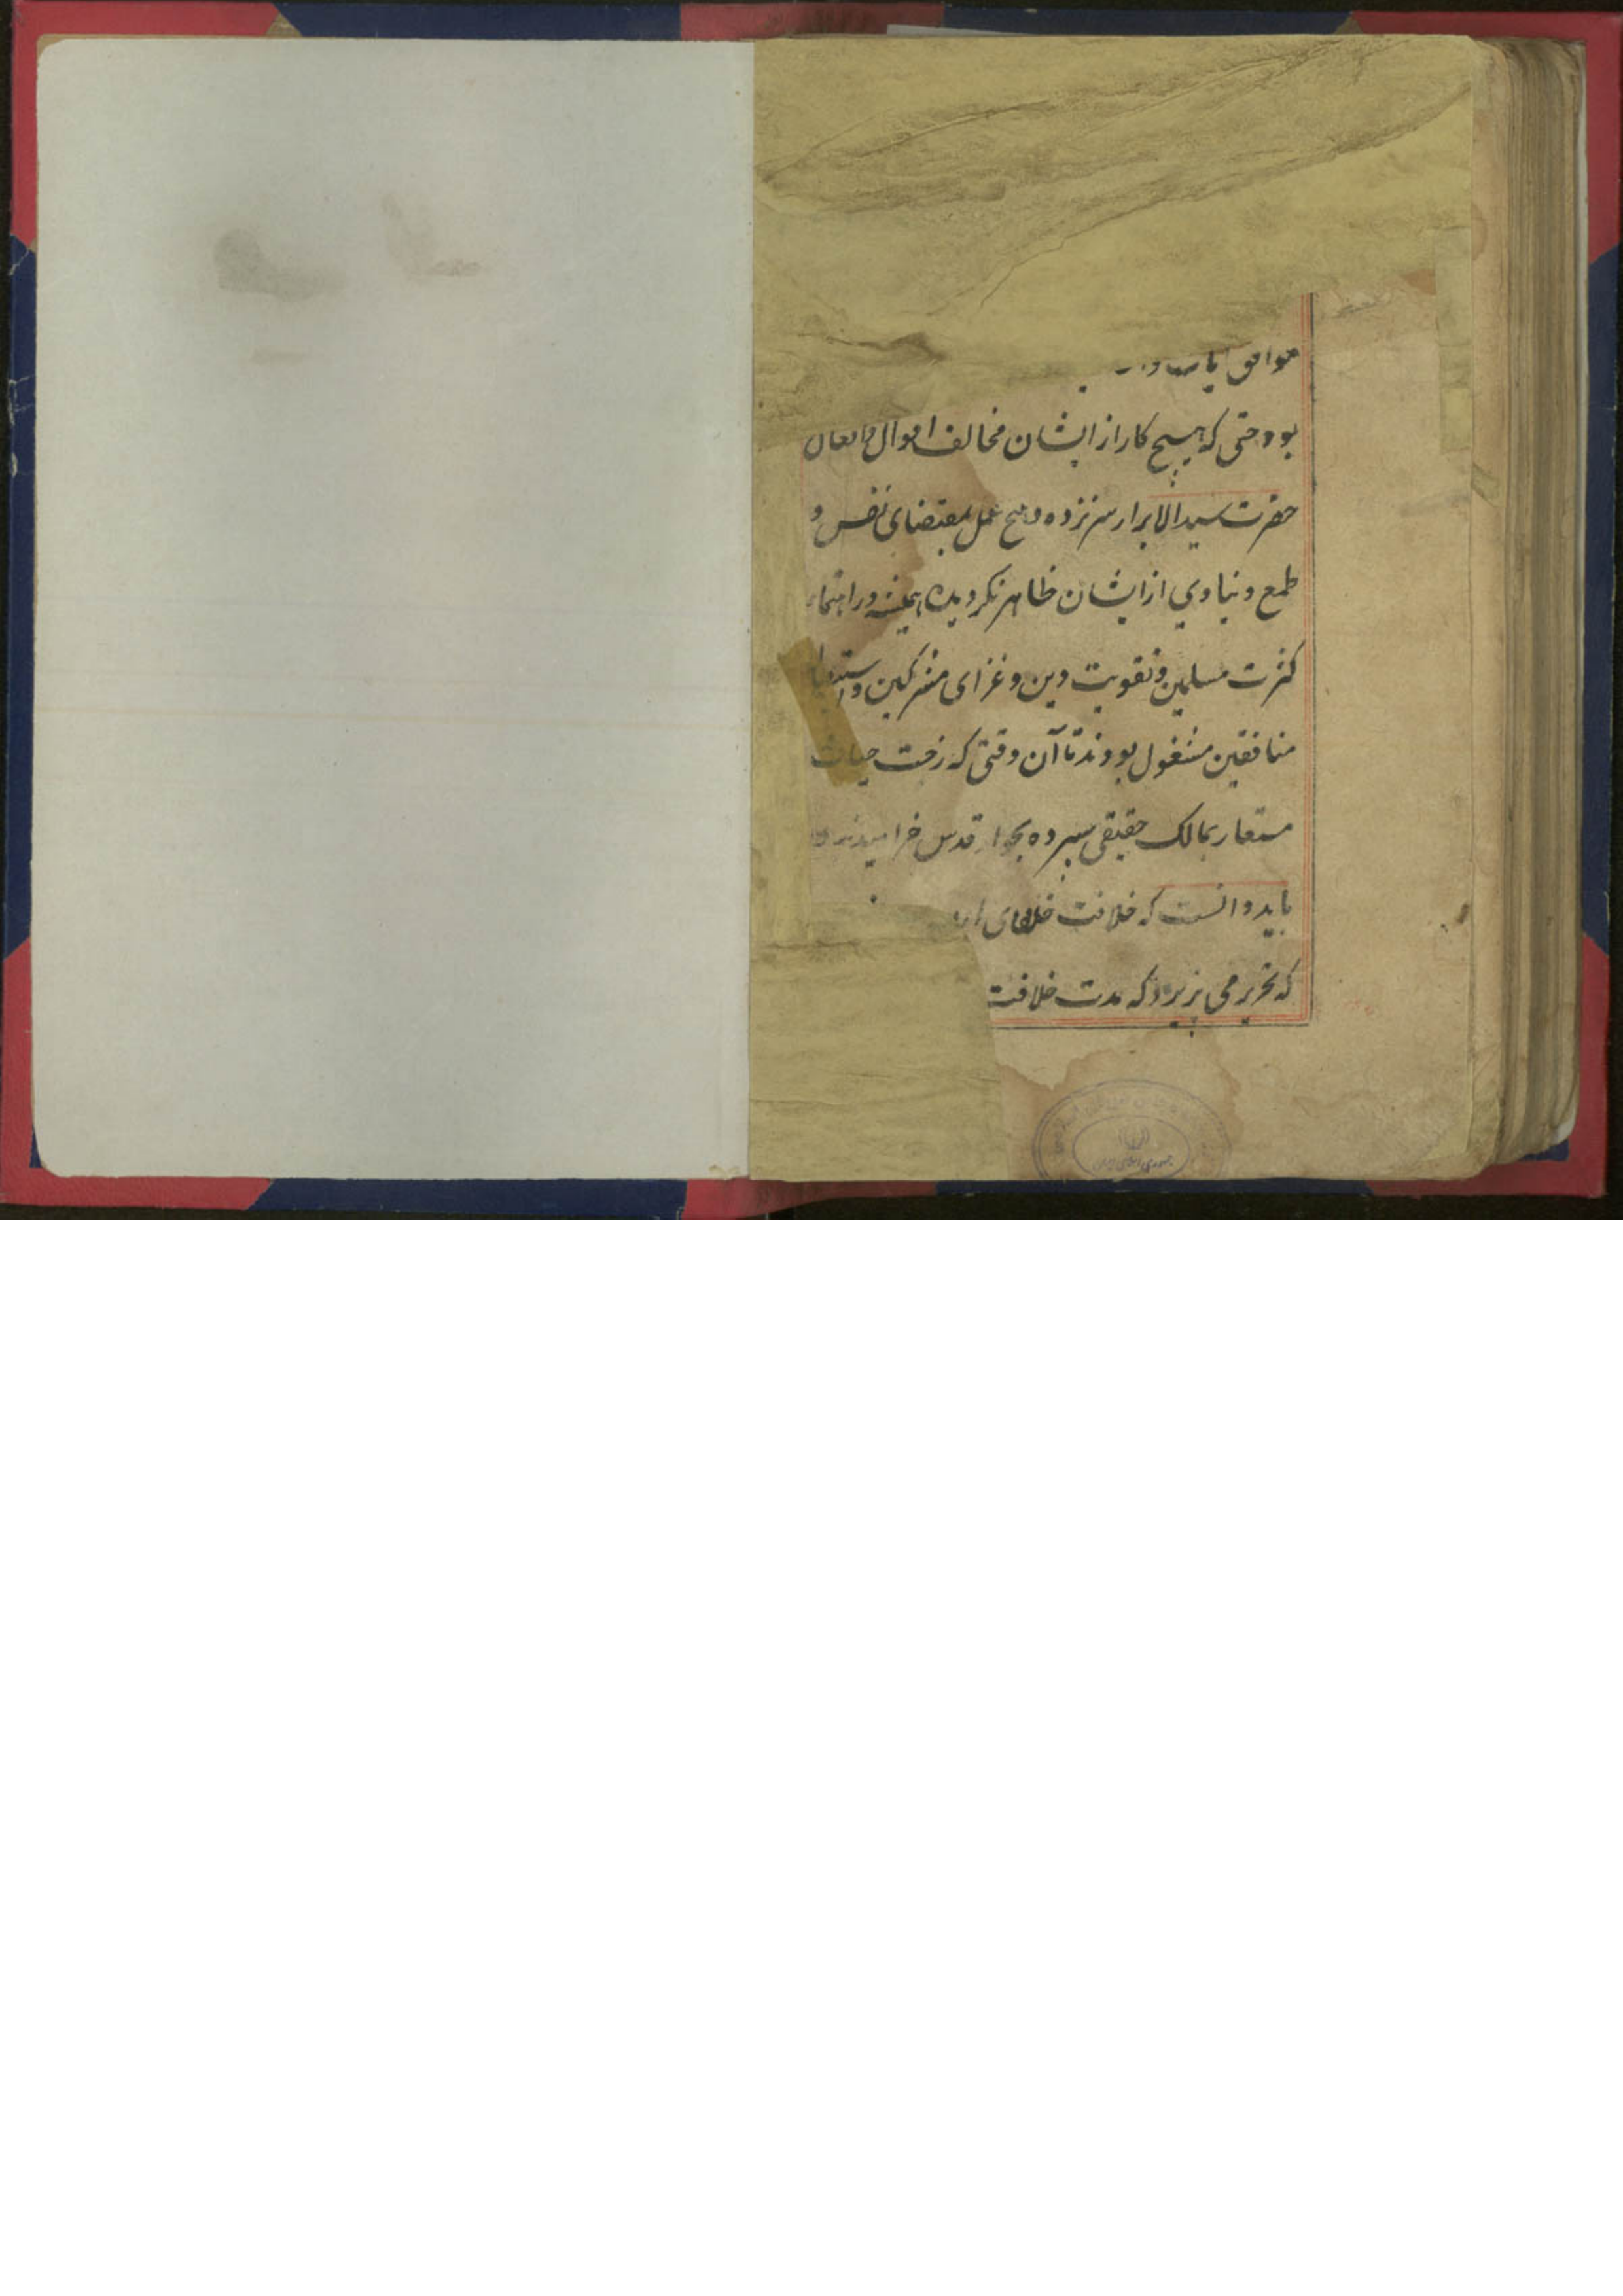 موافق
بود حتی که هیچ کار از ایشان مخالف اقوال و افعال
حضرت سید الابرار سر نزده و هیچ عمل بمقتضای نفس و
طمع دنیاوی از ایشان ظاهر نکردیده همیشه در
کثرت مسلمین و تقویت دین و غزای مشرکین و
منافقین مشغول بودند تا آن وقتی که رخت حیات
مستعار بمالک حقیقی سپرده بجوار قدس خرامیدند
باید دانست که خلافت خلفای
که تحریر می پزیرد که مدت خلافت
جمهوری اسلامی ایران